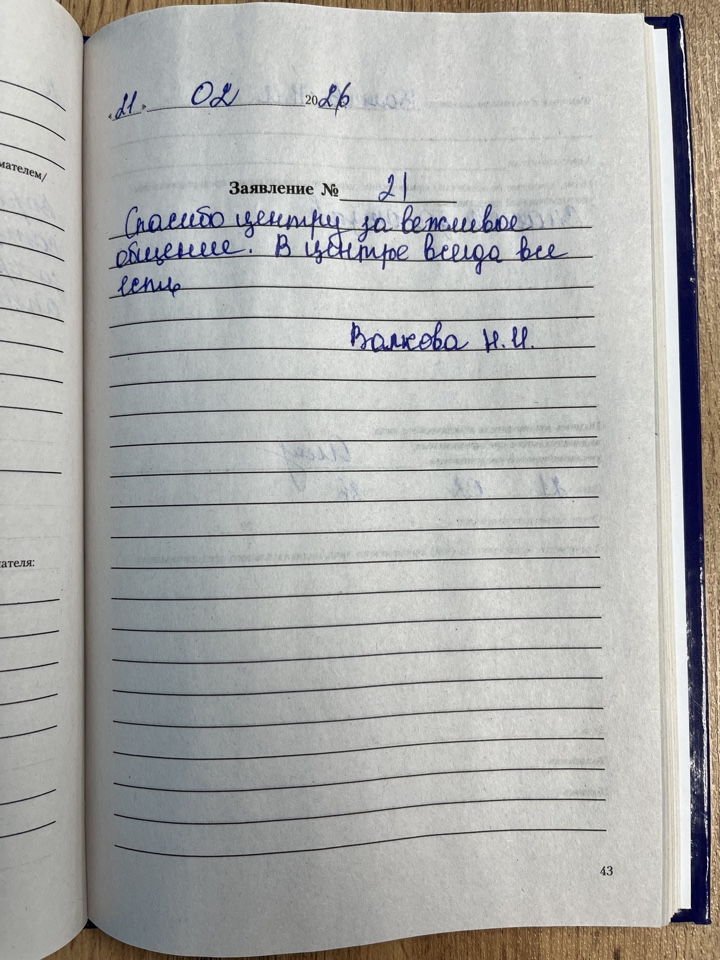 «21» 02 2026
мателем/
Заявление № 21
Спасибо центру за вежливое
общение. В центре всегда все
есть
Валкова Н.И.
ателя:
43